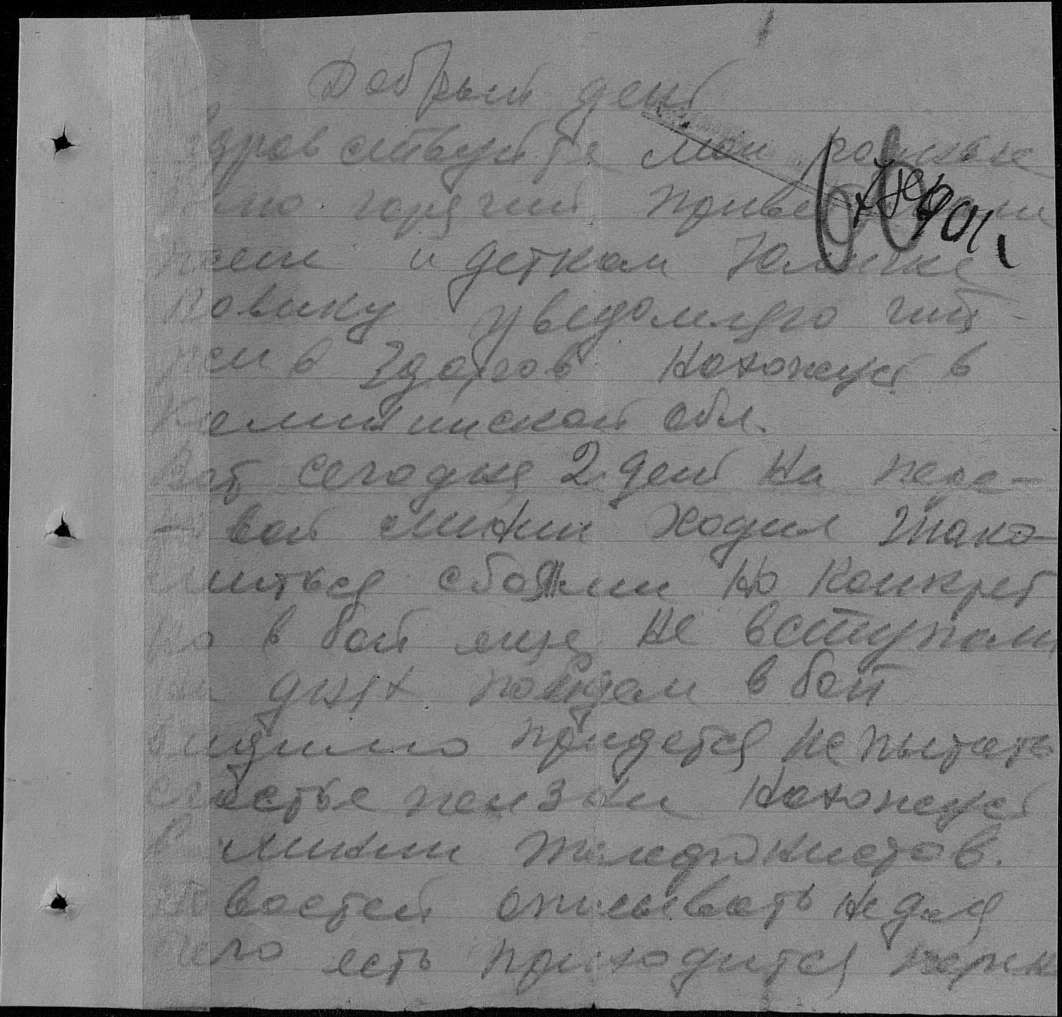 Добрый день
Здравствуйте мои родные
горячий
и деткам Юличке
Вовику уведомляю что
жив здоров нахожусь в
Калининской обл.
Вот сегодня 2 день на пере-
- вой линии ходил знако-
миться с боями но конкрет
но в бой еще не вступали
на днях пойдем в бой
видимо придется испытать
счастье жизни нахожусь
в линии телефонистов.
Новостей описывать не для
чего есть приходится